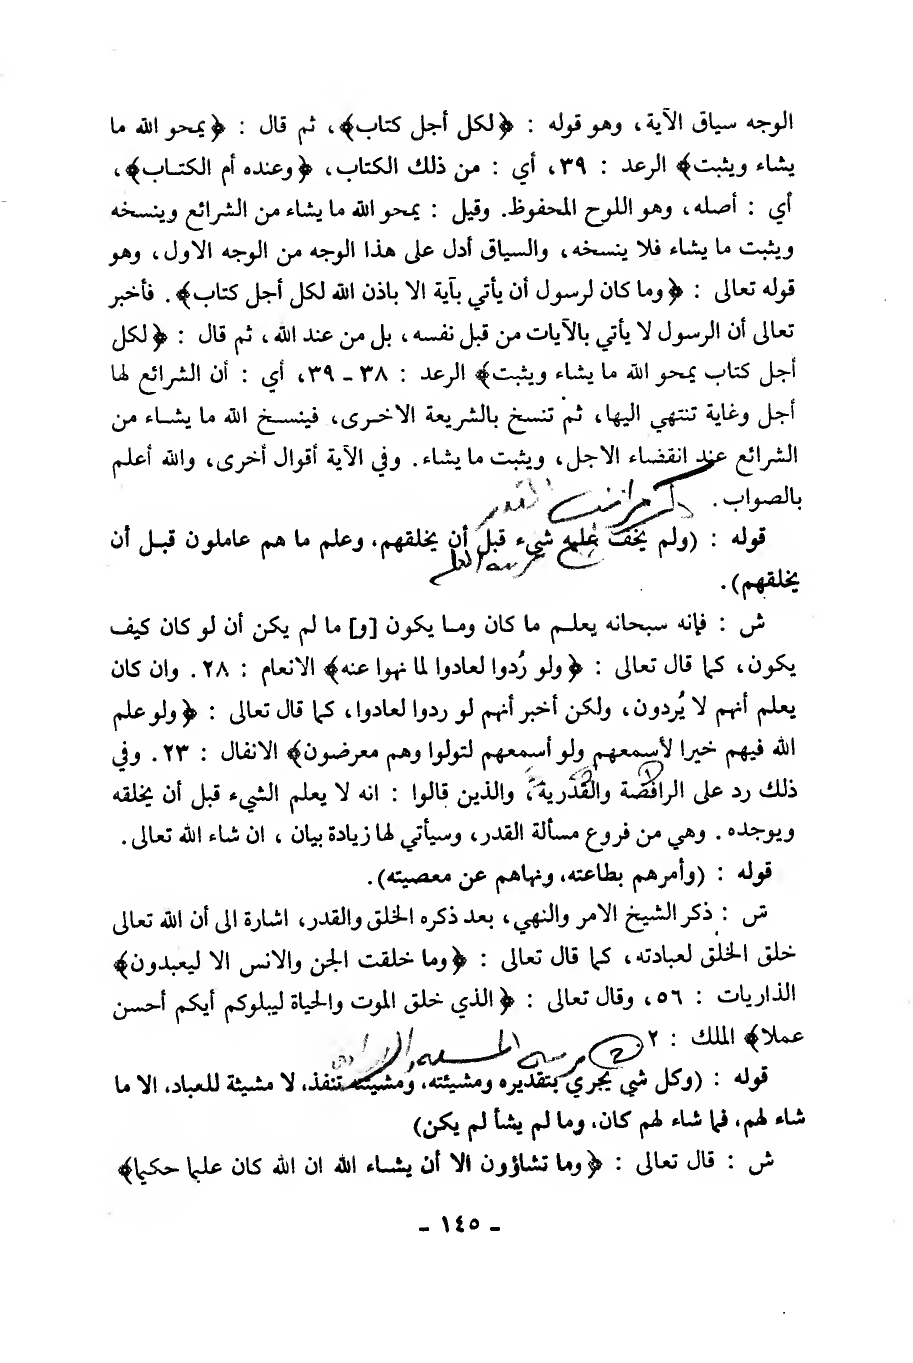 الوجه سياق الآية، وهو قوله : ﴿لكل أجل كتاب﴾، ثم قال : ﴿يمحو الله ما
يشاء ويثبت﴾ الرعد : ٣٩، أي : من ذلك الكتاب، ﴿وعنده أم الكتـاب﴾،
أي : أصله، وهو اللوح المحفوظ. وقيل : يمحو الله ما يشاء من الشرائع وينسخه
ويثبت ما يشاء فلا ينسخه، والسياق أدل على هذا الوجه من الوجه الاول، وهو
قوله تعالى : ﴿وما كان لرسول أن يأتي بآية الا باذن الله لكل أجل كتاب﴾. فأخبر
تعالى أن الرسول لا يأتي بالآيات من قبل نفسه، بل من عند الله، ثم قال : ﴿لكل
أجل كتاب يمحو الله ما يشاء ويثبت﴾ الرعد : ٣٨ ـ ٣٩، أي : أن الشرائع لها
أجل وغاية تنتهي اليها، ثم تنسخ بالشريعة الاخـرى، فينســخ الله ما يشــاء من
الشرائع عند انقضاء الاجل، ويثبت ما يشاء. وفي الآية أقوال أخرى، والله أعلم
بالصواب.
ذكر مراتب القدر
قوله : (ولم يخف عليه شيء قبل أن يخلقهم، وعلم ما هم عاملون قبـل أن
مرتبة العلم
يخلقهم).
ش : فإنه سبحانه يعلـم ما كان ومـا يكون [و] ما لم يكن أن لو كان كيف
يكون، كما قال تعالى : ﴿ولو رُدوا لعادوا لما نهوا عنه﴾ الانعام : ٢٨. وان كان
يعلم أنهم لا يُردون، ولكن أخبر أنهم لو ردوا لعادوا، كما قال تعالى : ﴿ولو علم
الله فيهم خيرا لأسمعهم ولو أسمعهم لتولوا وهم معرضون﴾ الانفال : ٢٣. وفي
ذلك رد على الرافضة والقدرية، والذين قالوا : انه لا يعلم الشيء قبل أن يخلقه
ويوجده. وهي من فروع مسألة القدر، وسيأتي لها زيادة بيان ، ان شاء الله تعالى.
قوله : (وأمرهم بطاعته، ونهاهم عن معصيته).
ش : ذكر الشيخ الامر والنهي، بعد ذكره الخلق والقدر، اشارة الى أن الله تعالى
خلق الخلق لعبادته، كما قال تعالى : ﴿وما خلقت الجن والانس الا ليعبدون﴾
الذاريات : ٥٦، وقال تعالى : ﴿الذي خلق الموت والحياة ليبلوكم أيكم أحسن
عملا﴾ الملك : ٢.
قوله : (وكل شي يجري بتقديره ومشيئته، ومشيئته تنفذ، لا مشيئة للعباد، الا ما
شاء لهم، فما شاء لهم كان، وما لم يشأ لم يكن)
ش : قال تعالى : ﴿وما تشاؤون الا أن يشـاء الله ان الله كان عليما حكيما﴾
ـ ١٤٥ ـ